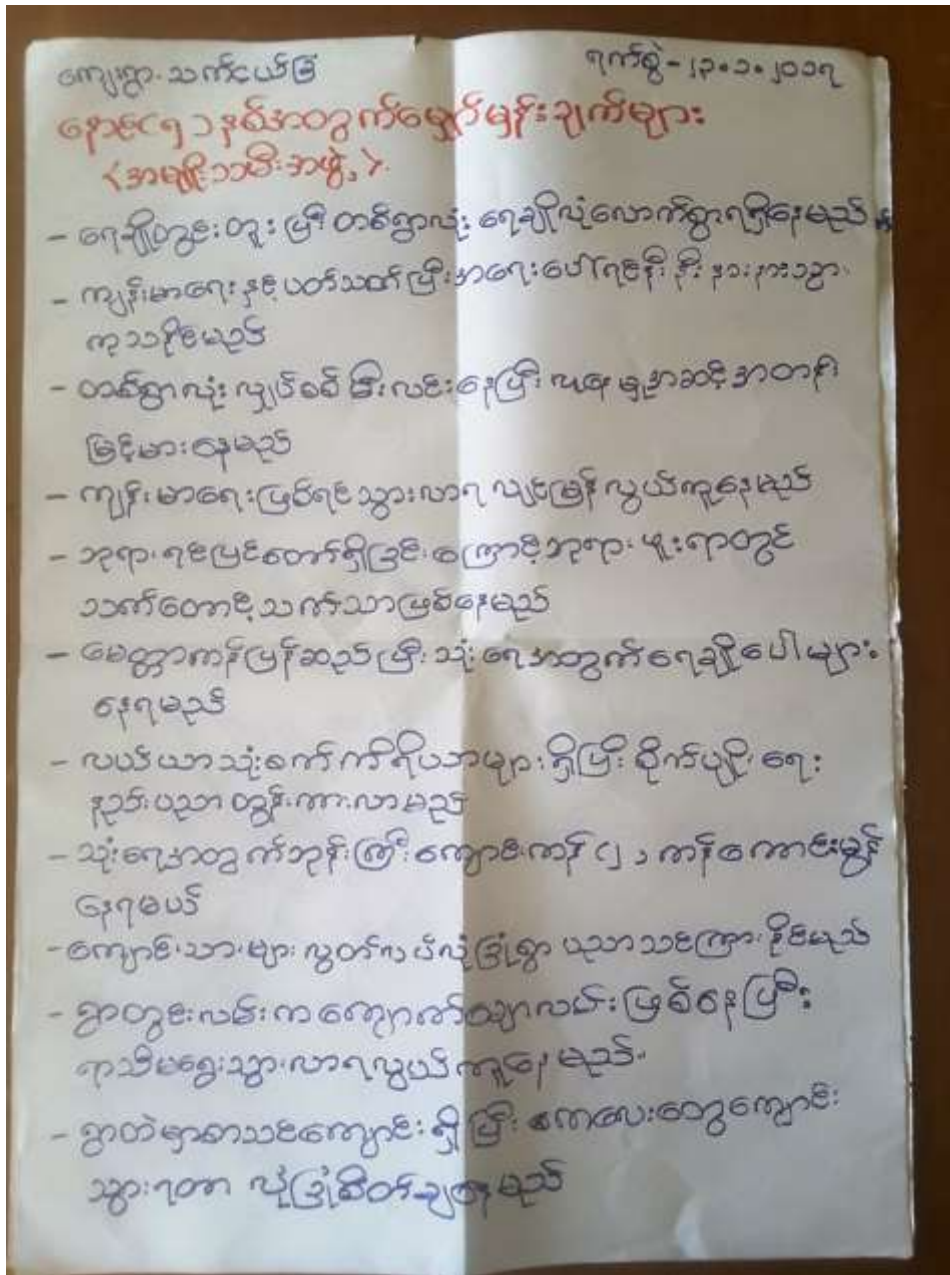 ကျေးရွာ-သက်ငယ်ခြံ ရက်စွဲ-၂၃.၁.၂၀၁၇
နောင် ၅ နှစ်အတွက်မျှော်မှန်းချက်များ
<အမျိုးသမီးအဖွဲ့>
- ရေချိုတွင်းတူးပြီး တစ်ရွာလုံး ရေချိုလုံလောက်စွာရရှိနေမည်
- ကျန်းမာရေးနှင့်ပတ်သတ်ပြီးအရေးပေါ်ရင်နီးနီးနားနားသွား
ကုသနိုင်မည်
- တစ်ရွာလုံး လျှပ်စစ်မီးလင်းနေပြီး လူနေမှုအဆင့်အတန်း
မြင့်မားနေမည်
- ကျန်းမာရေးဖြစ်ရင်သွားလာရ လျင်မြန်လွယ်ကူနေမည်
- ဘုရားရင်ပြင်တော်ရှိခြင်းကြောင့်ဘုရားဖူးရာတွင်
သက်တောင့်သက်သာဖြစ်နေမည်
- မေတ္တာကန်ပြန်ဆည်ပြီးသုံးရေအတွက်ရေချိုပေါများ
နေရမည်
- လယ်ယာသုံးစက်ကိရိယာများရှိပြီးစိုက်ပျိုးရေး
နည်းပညာ တွန်းကားလာမည်
- သုံးရေအတွက်ဘုန်းကြီးကျောင်းကန် (၂) ကန်ကောင်းမွန်
နေရမယ်
- ကျောင်းသားများ လွတ်လပ်လုံခြုံစွာ ပညာသင်ကြားနိုင်မည်
- ရွာတွင်းလမ်းက ကျောက်ချောလမ်းဖြစ်နေပြီး
ရာသီမရွေးသွားလာရလွယ်ကူနေမည်။
- ရွာထဲမှာစာသင်ကျောင်းရှိပြီး ကလေးတွေကျောင်း
သွားရတာ လုံခြုံစိတ်ချနေမည်